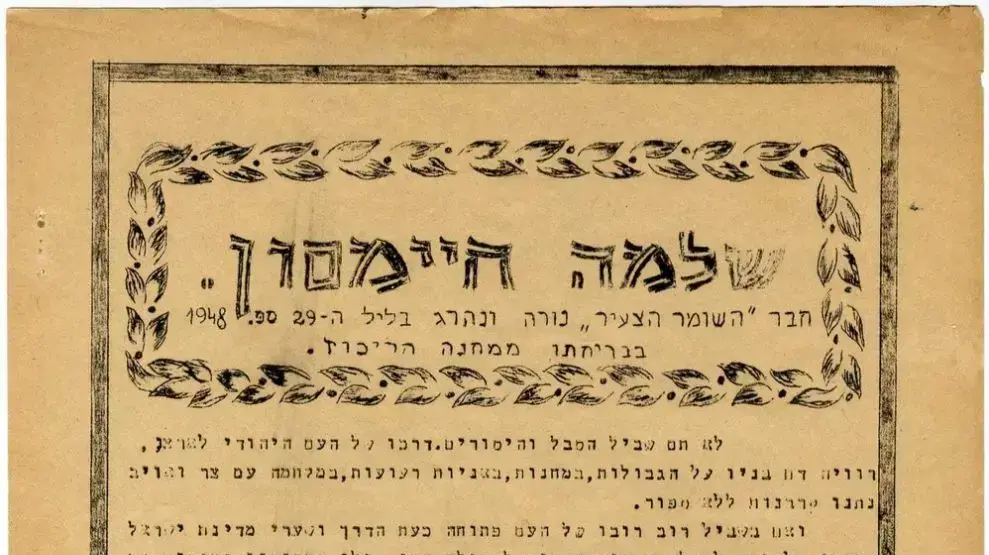 שלמה חיימסון.
חבר "השומר הצעיר" נורה ונהרג בליל ה-29 ספ. 1948
בבריחתו ממחנה הריכוז.
לא תם שביל הסבל והיסורים.דרכו של העם היהודי לארצו,
רוויה דם בניו על הגבולות,במחנות,באניות רעועות,במלחמה עם צר ואויב
נתנו קרבנות ללא ספור.
ואם בשביל רוב רובו של העם פתוחה כעת הדרך ושערי מדינת ישראל